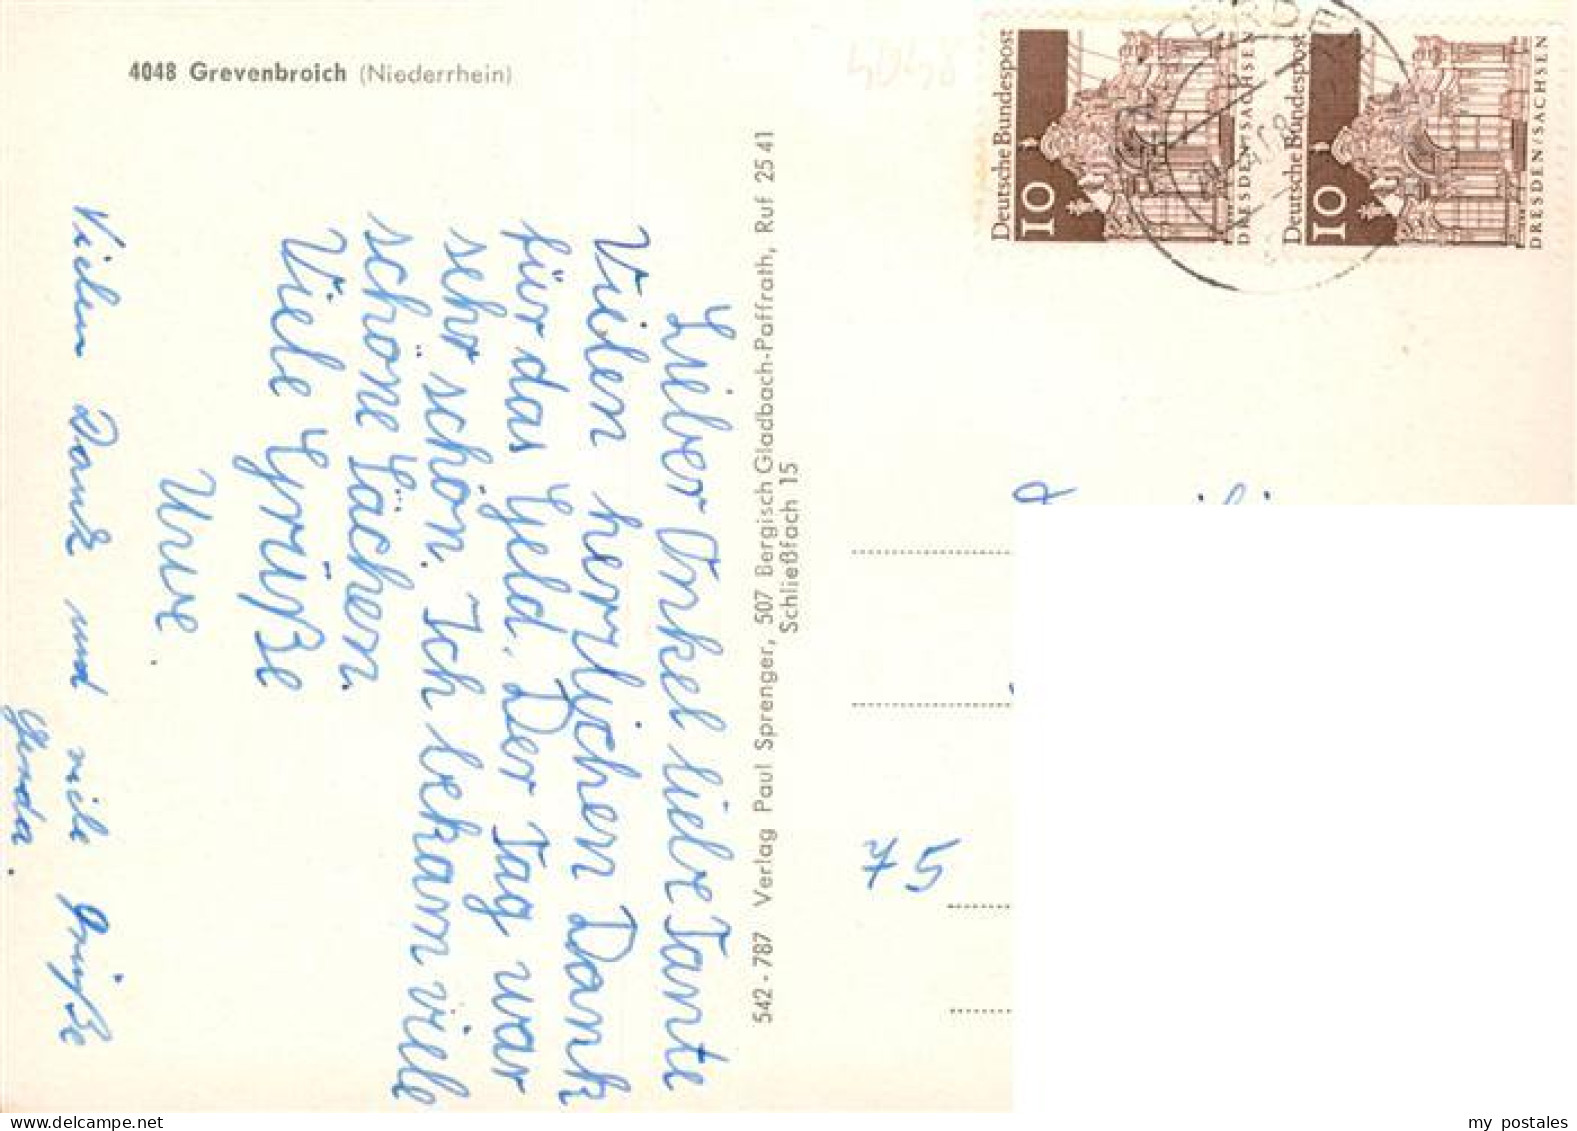 4048 Grevenbroich (Niederrhein)
Lieber Onkel liebe Tante
Vielen herzlichen Dank
für das Geld. Der Tag war
sehr schön. Ich bekam viele
schöne Sächen.
Viele Grüße
Uwe.
Vielen Dank und viele Grüße
Gerda.
542 - 787 Verlag Paul Sprenger, 507 Bergisch Gladbach-Paffrath, Ruf 25 41
Schließfach 15
Deutsche Bundespost
10
DRESDEN/SACHSEN
Deutsche Bundespost
10
DRESDEN/SACHSEN
75
my postales